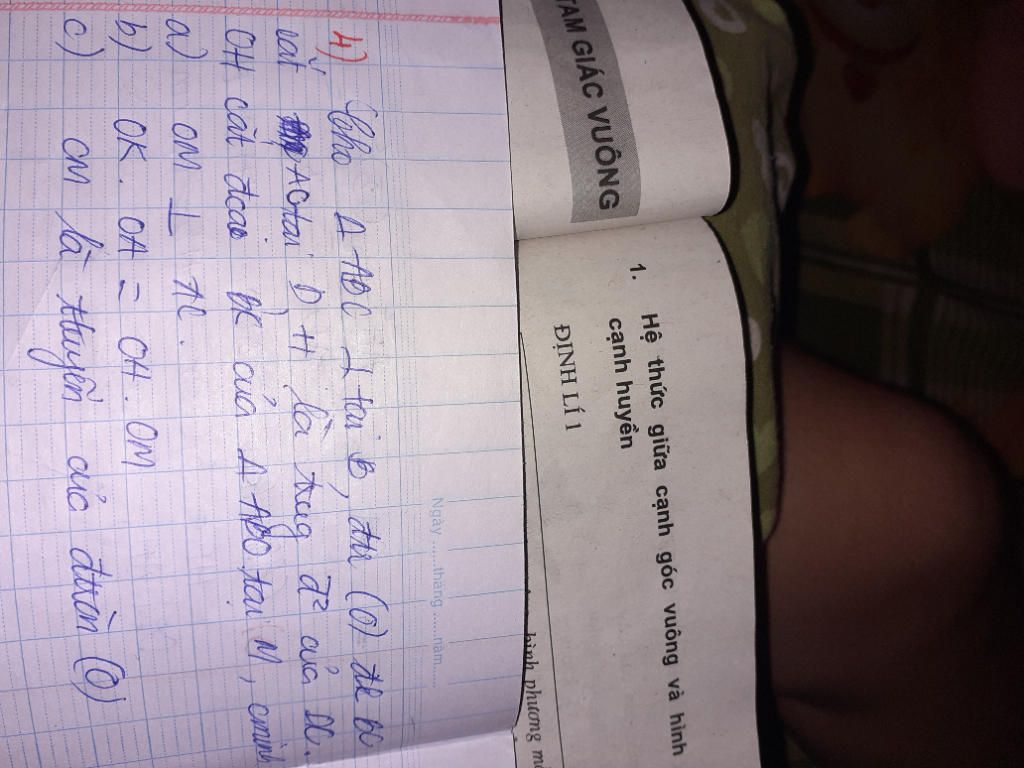 TAM GIÁC VUÔNG
1. Hệ thức giữa cạnh góc vuông và hình
cạnh huyền
ĐỊNH LÍ 1
hình phương
Ngày ......tháng ......năm......
4) Cho Δ ABC ⊥ tại B, đtr (O) đk BC
cắt AC tại D H là trug đ² của DC.
OH cắt đcao BK của Δ ABO tại M, cminh
a) OM ⊥ AC.
b) OK. OA = OH. OM
c) CM là ttuyến của đtròn (O)